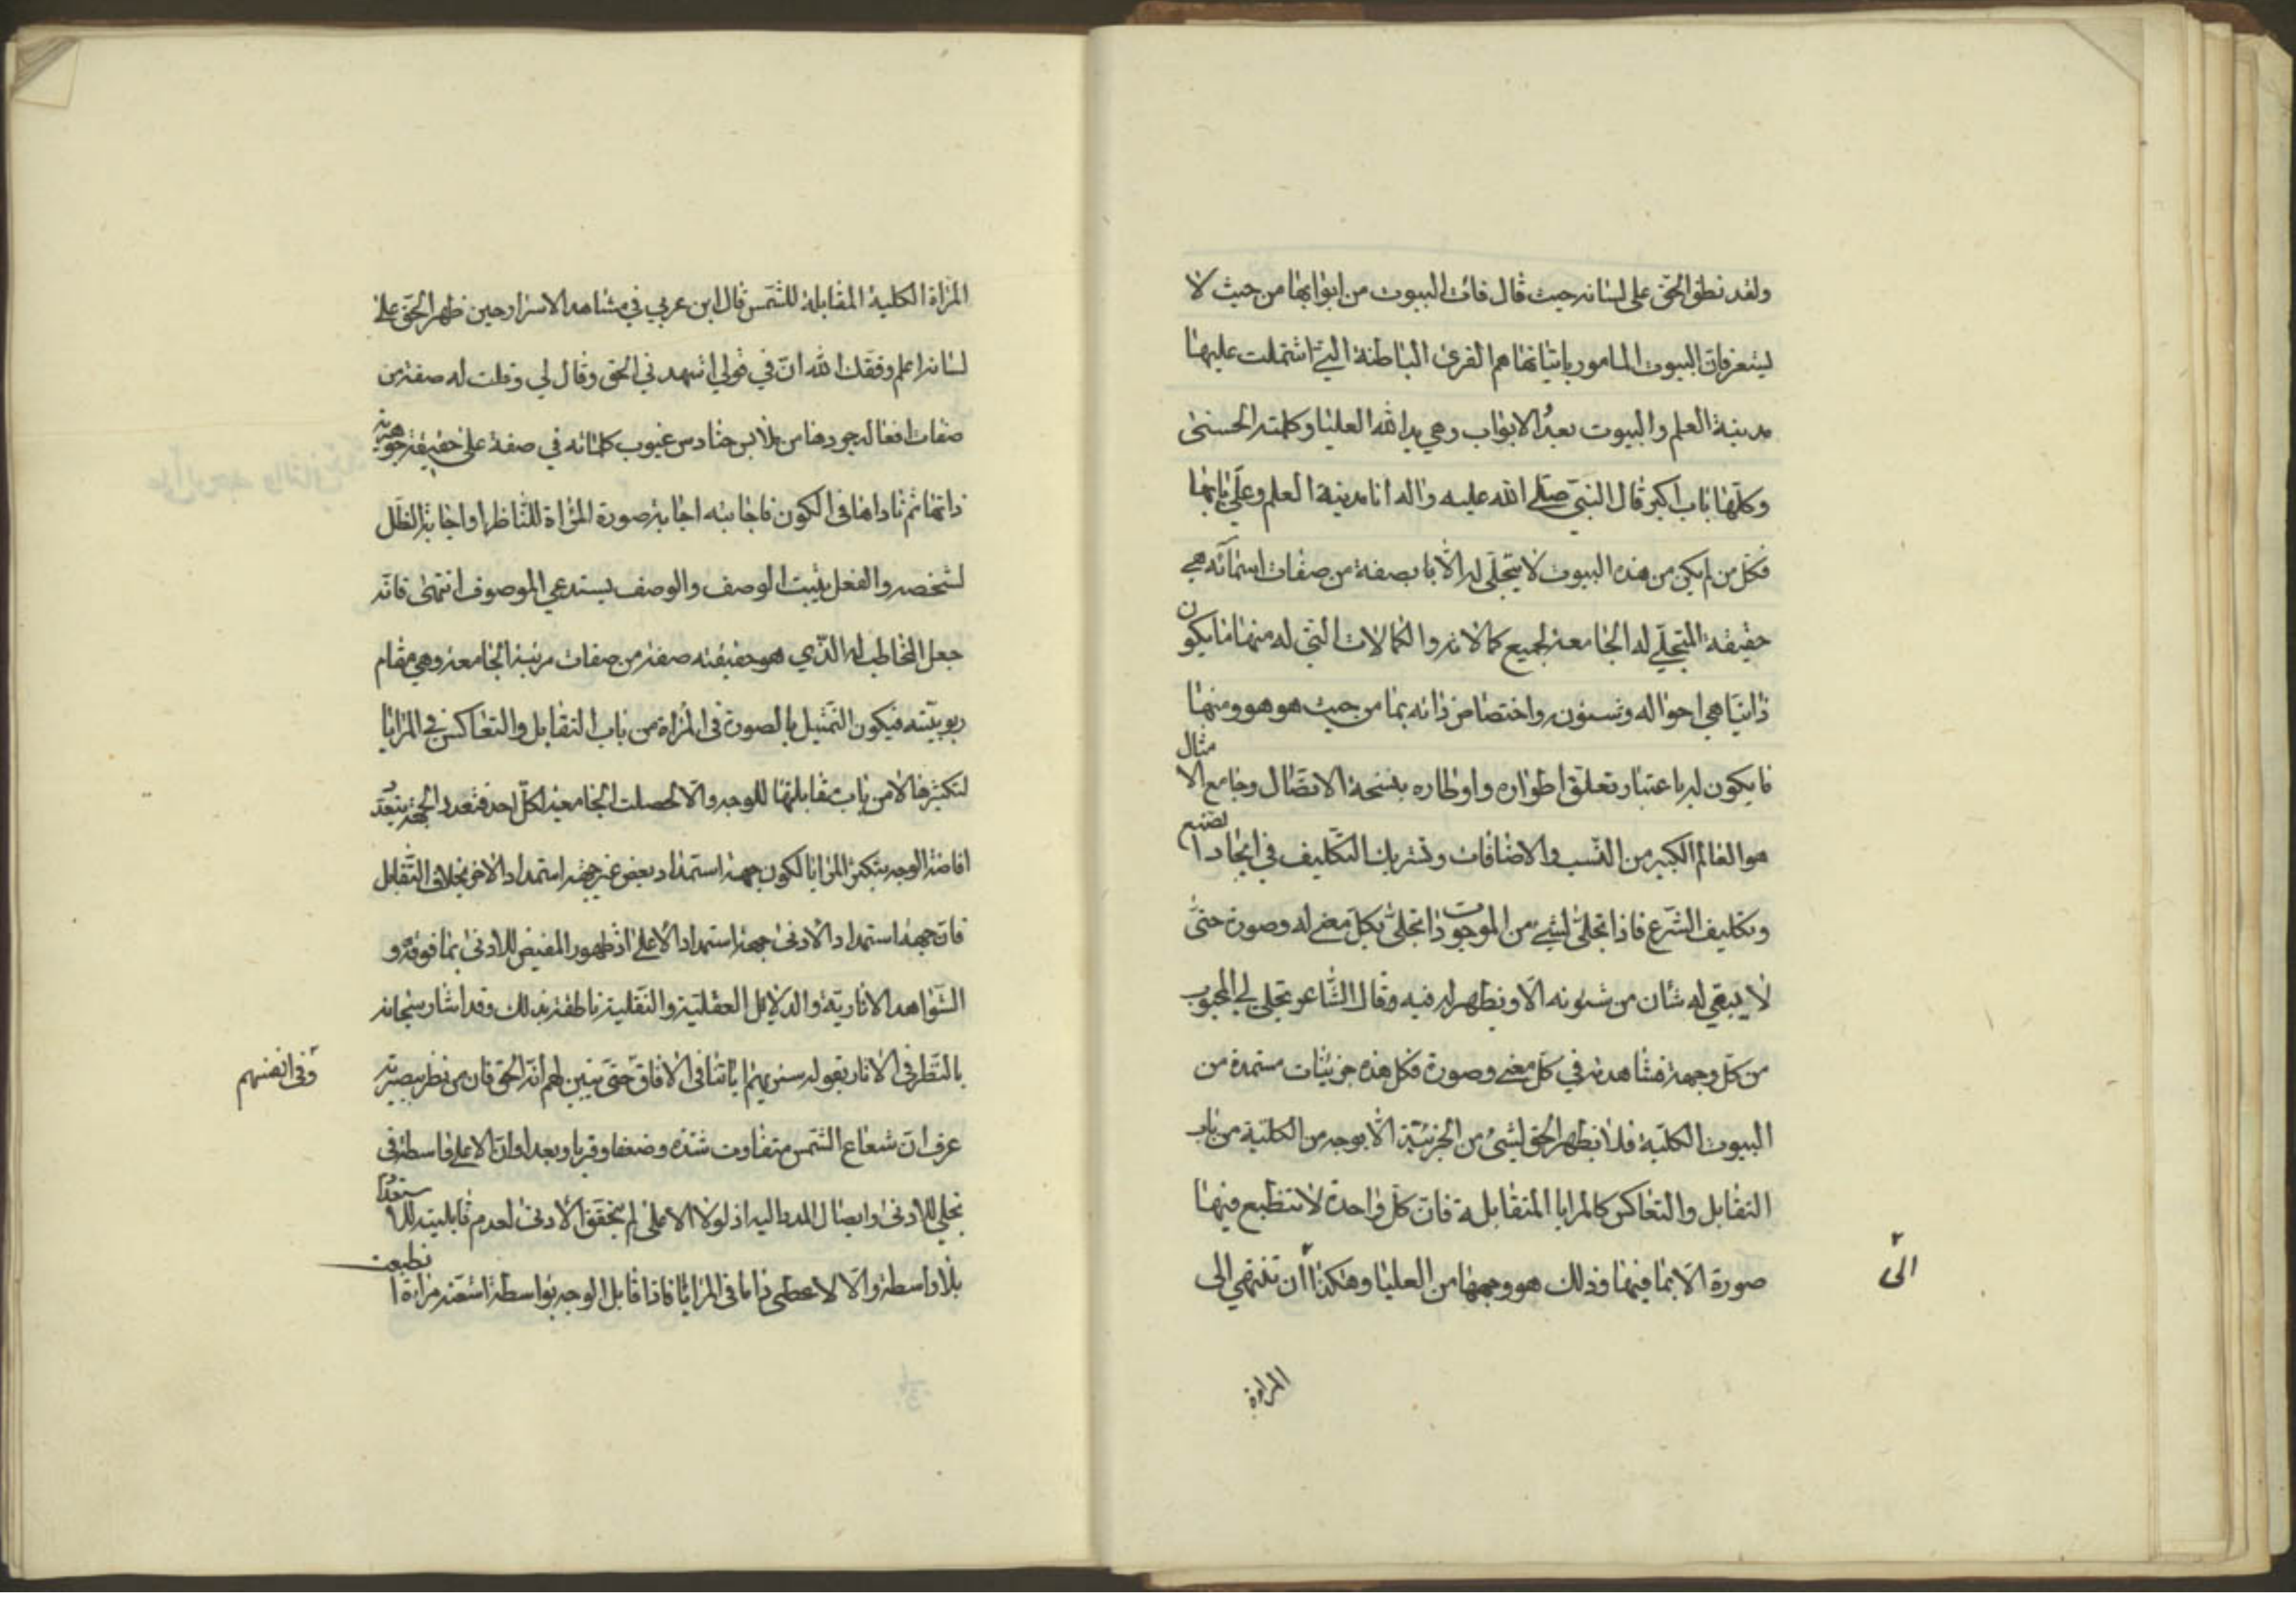 ولقد نطق الحق على لسانه حيث قال فات البيوت من ابوابها من حيث لا
يشعر فان البيوت المامور باتيانها هم القرى الباطنة التي اشتملت عليها
مدينة العلم والبيوت بعد الابواب وهي يد الله العليا وكلمته الحسنى
وكلها باب اكبر قال النبي صلى الله عليه واله انا مدينة العلم وعلي بابها
فكل من لم يكن من هذه البيوت لا يتجلى له الا با بصفة من صفات اسمائه هي
حقيقة المتجلي له الجامعة لجميع كمالاته والكمالات التي له منها ما يكون
ذاتيا هي احواله وشئونه واختصاص ذاته بما من حيث هو هو ومنها
ما يكون له باعتبار تعلق اطواره واوطاره بنسخة الاتصال وجامع الامثال
هو العالم الكبير من النسب والاضافات وتشريك التكليف في ايجاد
وتكليف الشرع فاذا تجلى لشيء من الموجودات تجلى بكل معنى له وصورة حتى
لا يبقي له شان من شئونه الا ويظهر له فيه وقال الشاعر تجلى لي المحبوب
من كل وجهة فشاهدته في كل معنى وصورة فكل هذه جزئيات مستمدة من
البيوت الكلية فلا يظهر الحق لشيء من الجزئية الا بوجه من الكلية من باب
التقابل والتعاكس كالمرايا المتقابلة فان كل واحدة لا تنطبع فيها
صورة الا بما فيها وذلك هو وجهها من العليا وهكذا ان تنتهي الى
الى
المراءة
المراة الكلية المقابلة للشمس قال ابن عربي في مشاهد الاسرار حين ظهر الحق على
لسانه اعلم وفقك الله ان في قولي اشهدني الحق وقال لي وقلت له صفة من
صفات افعاله جردها من ملابس حنادس غيوب كلماته في صفة على حقيقة جوهرية
ذاتها ثم ناداها في الكون فاجابته اجابة صورة المراة للناظر او اجابة الظل
لشخصه والفعل يثبت الوصف والوصف يستدعي الموصوف انتهى فانه
جعل المخاطب له الذي هو حقيقته صفة من صفات مرتبة الجامعة وهي مقام
ربوبيته فيكون التمثيل بالصورة في المراة من باب التقابل والتعاكس في المرايا
لتكثرها لا من باب مقابلتها للوجه والا لحصلت الجامعية لكل احد فتعدد الجهة بتعدد
افاضة الوجه بتكثر المرايا لكون جهة استمداد بعض غير جهة استمداد الاخر بخلاف التقابل
فان جهة استمداد الادنى جهة استمداد الاعلى اذ ظهور المفيض للادنى بما فوقه و
الشواهد الاثارية والدلائل العقلية والنقلية ناطقة بذلك وقد اشار سبحانه
بالنظر في الاثار بقوله سنريهم اياتنا في الافاق حتى يتبين لهم انه الحق فان من نظر ببصيرته
وفي انفسهم
عرف ان شعاع الشمس متفاوت شدة وضعفا وقربا وبعدا وان الاعلى واسطة في
تجلي للادنى وايصال المدد اليه اذ لولا الاعلى لم يتحقق الادنى لعدم قابليته للاستمداد
بلا واسطة والا لاعطى ذاما في المرايا فاذا قابل الوجه بواسطة اشعته مراة انطبعت